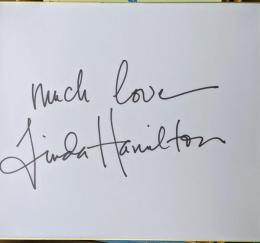 much love
Linda Hamilton